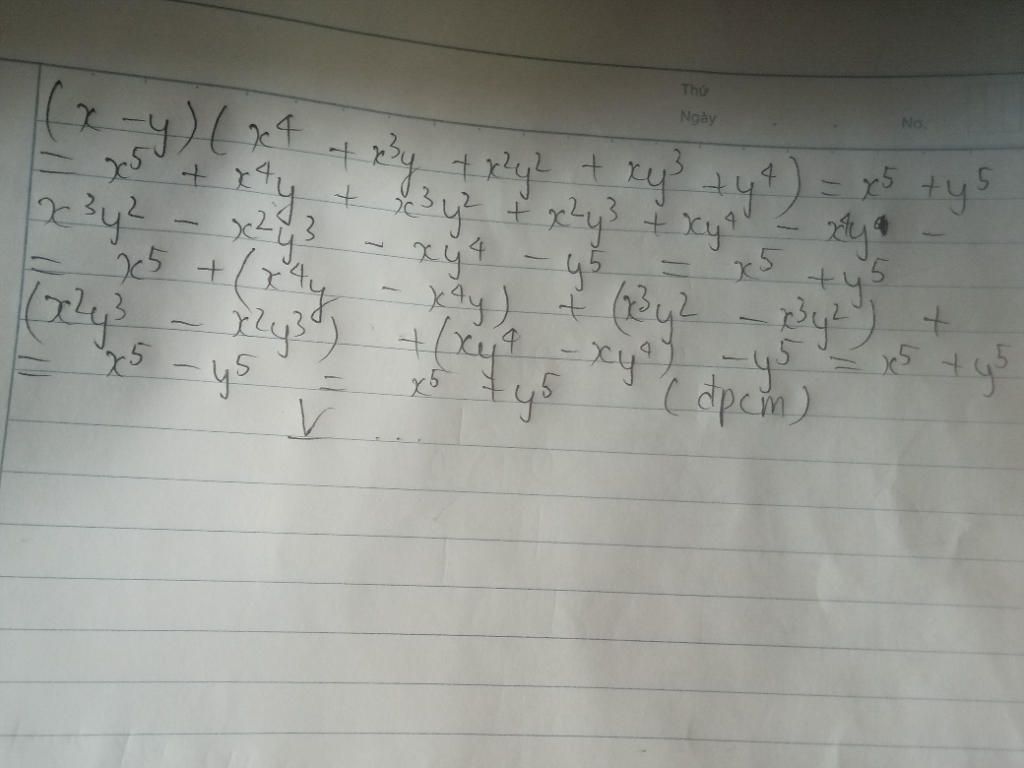 Thứ
Ngày
No.
(x - y)(x⁴ + x³y + x²y² + xy³ + y⁴) = x⁵ + y⁵
= x⁵ + x⁴y + x³y² + x²y³ + xy⁴ - x⁴y -
x³y² - x²y³ - xy⁴ - y⁵ = x⁵ + y⁵
= x⁵ + (x⁴y - x⁴y) + (x³y² - x³y²) +
(x²y³ - x²y³) + (xy⁴ - xy⁴) - y⁵ = x⁵ + y⁵
= x⁵ - y⁵ = x⁵ + y⁵ (đpcm)
V ...